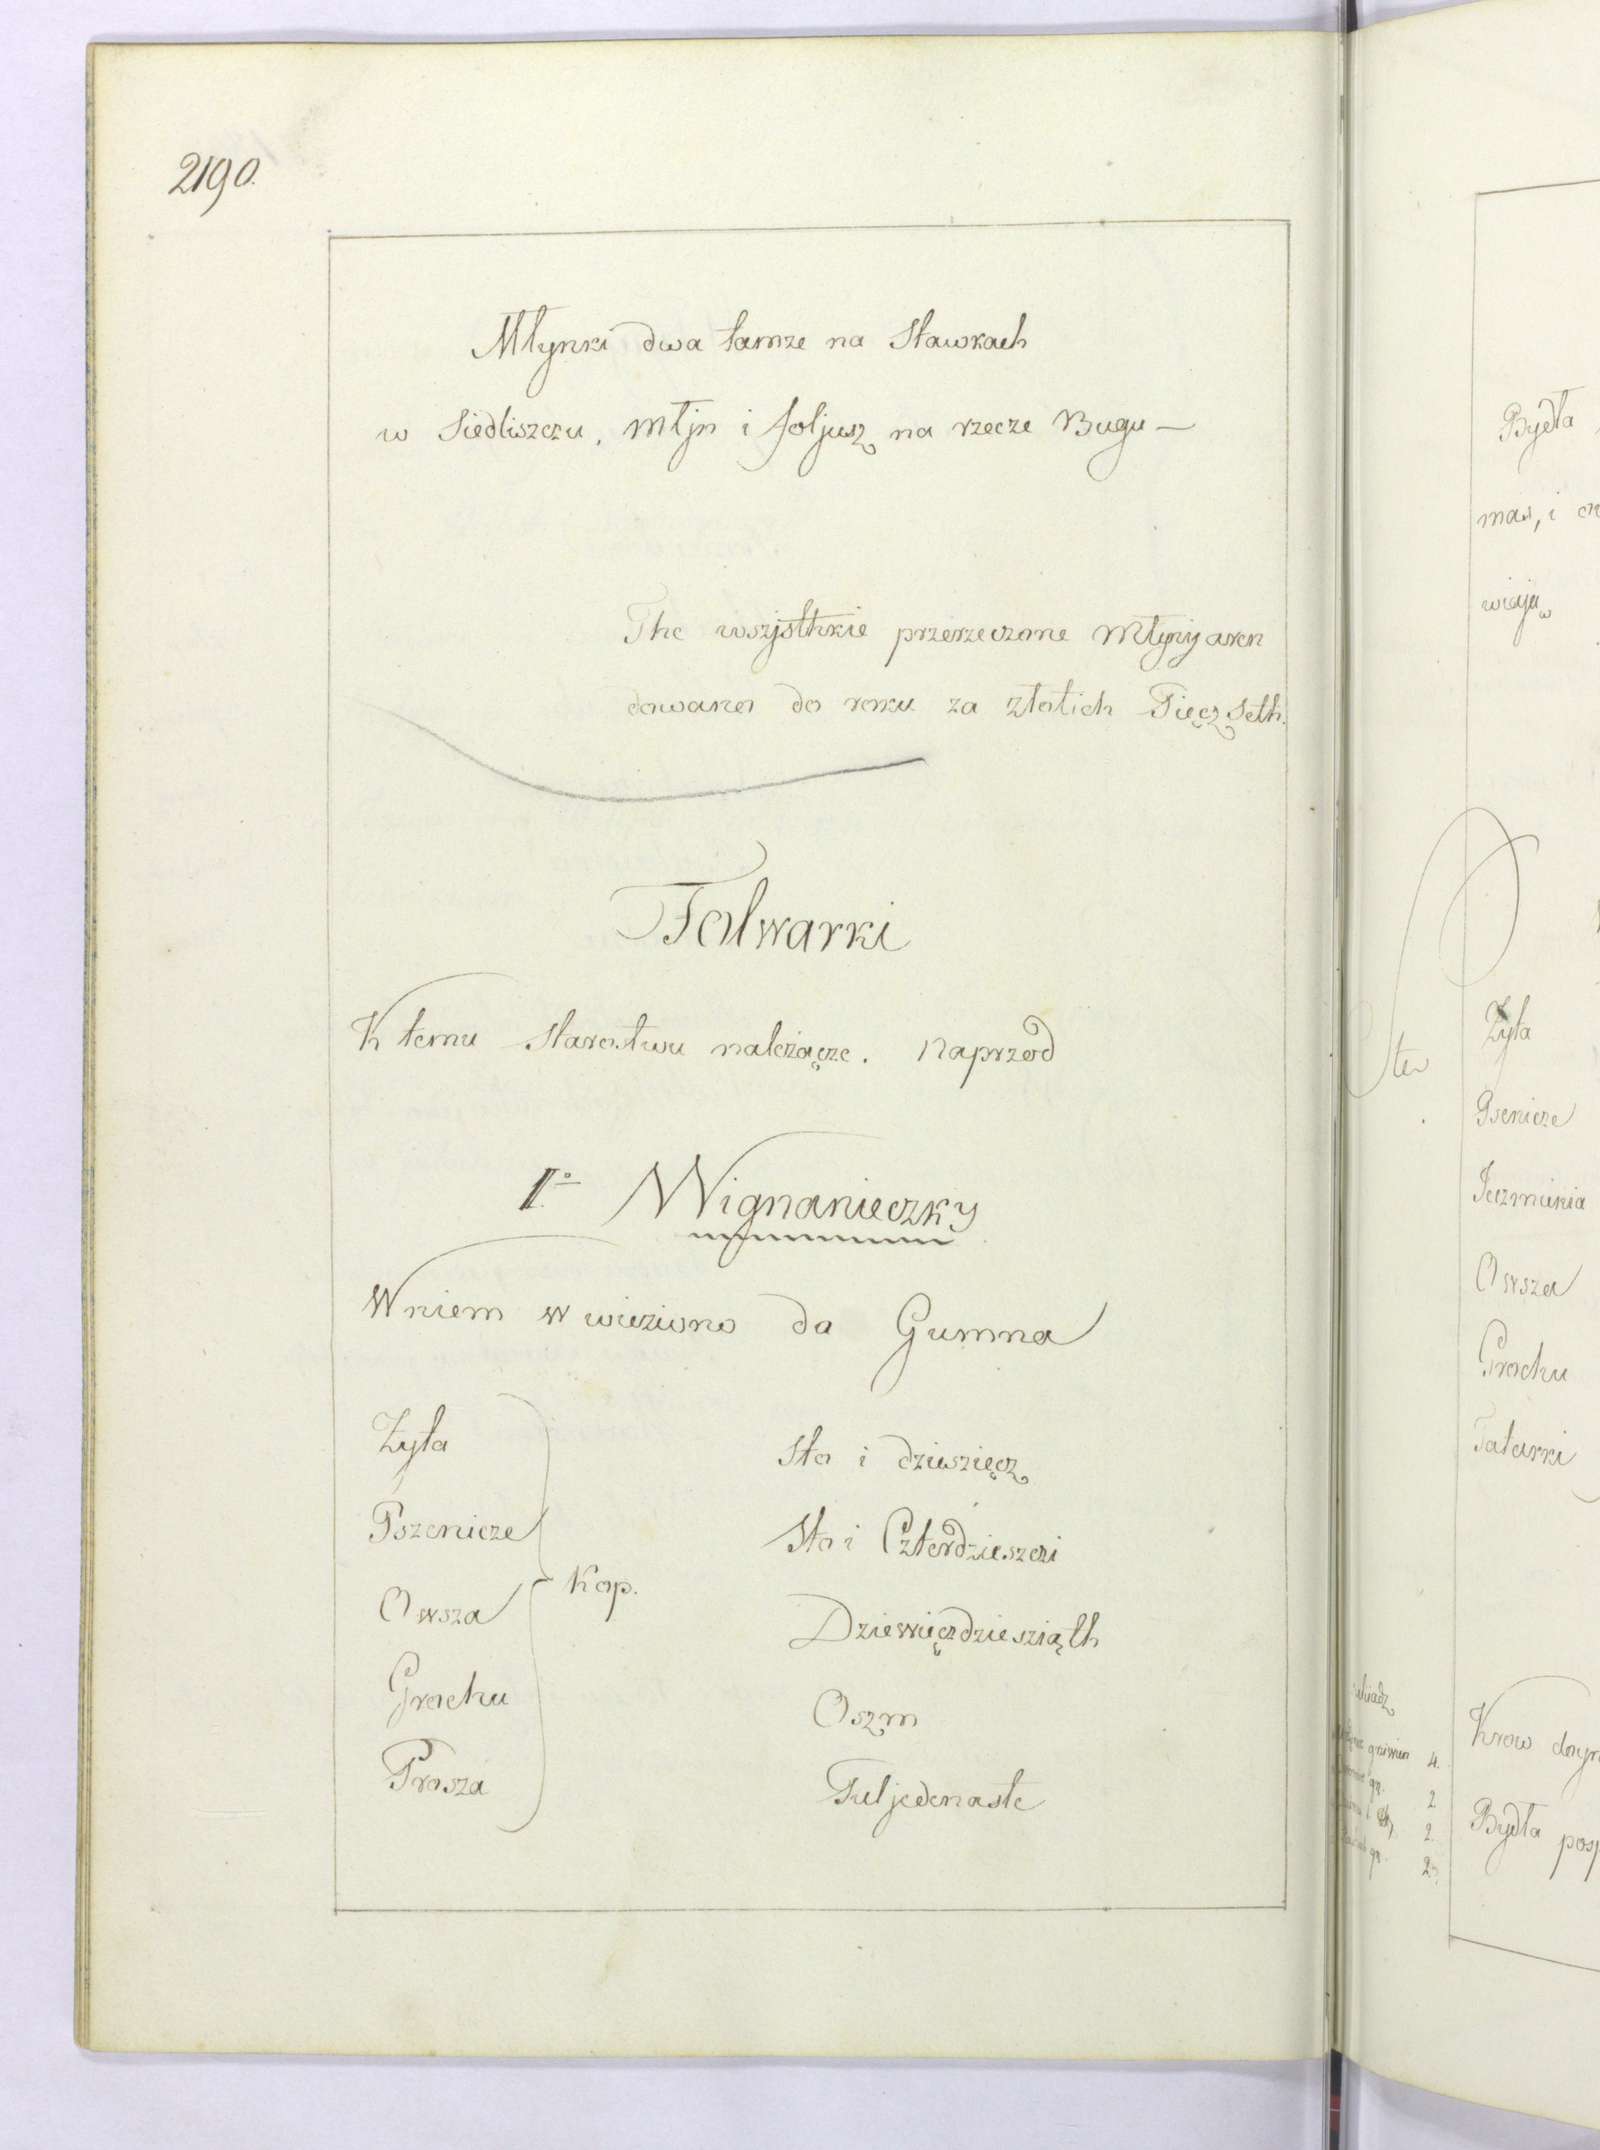 2190.
Młynki dwa tamze na Stawkach
w Siedliszczu, Młjn i foljusz na rzecze Bugu —
The wszjsthkie przerzeczone Młyny aren
dowano do roku za złotich Pięcz Seth.
Folwarki
K temu Starostwu należącze. Naprzod
1º Wignanieczky
W niem w wieziono do Gumna
Żyta Sto i dziesziecz
Pszenicze Sto i Czterdzieszczi
Kop.
Owsza Dziewięczdziesziąth
Grochu Oszm
Prosza Puljedenaste
Bydła
mas, i
Żyta
Psenicze
Jeczmienia
Owsza
Grochu
Tatarki
4.
2
2.
Krow
Bydła posp